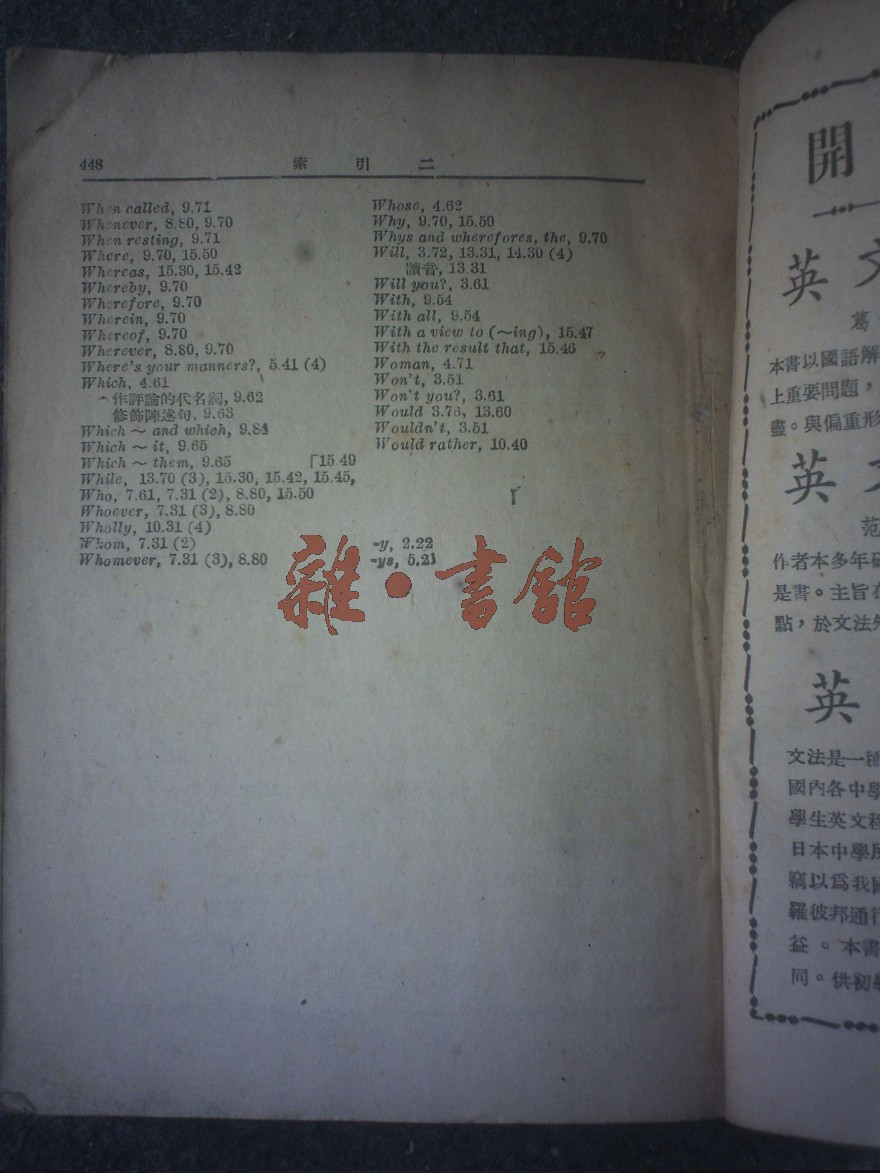 448 索 引 二
When called, 9.71
Whenever, 8.80, 9.70
When resting, 9.71
Where, 9.70, 15.50
Whereas, 15.30, 15.42
Whereby, 9.70
Wherefore, 9.70
Wherein, 9.70
Whereof, 9.70
Wherever, 8.80, 9.70
Where's your manners?, 5.41 (4)
Which, 4.61
作評論的代名詞, 9.62
修飾陳述句, 9.63
Which ~ and which, 9.84
Which ~ it, 9.65
Which ~ them, 9.65 「15.49
While, 13.70 (3), 15.30, 15.42, 15.45,
Who, 7.61, 7.31 (2), 8.80, 15.50
Whoever, 7.31 (3), 8.80
Wholly, 10.31 (4)
Whom, 7.31 (2)
Whomever, 7.31 (3), 8.80
Whose, 4.62
Why, 9.70, 15.50
Whys and wherefores, the, 9.70
Will, 3.72, 13.31, 14.30 (4)
讀音, 13.31
Will you?, 3.61
With, 9.54
With all, 9.54
With a view to (~ing), 15.47
With the result that, 15.46
Woman, 4.71
Won't, 3.51
Won't you?, 3.61
Would 3.76, 13.60
Wouldn't, 3.51
Would rather, 10.40
-y, 2.22
-ys, 5.21
雜·書館
開
英文
葛
本書以國語解
上重要問題，
盡。與偏重形
英
范
作者本多年研
是書。主旨在
點，於文法
英
文法是一種
國內各中學
學生英文程
日本中學所
竊以爲我國
羅彼邦通行
益。本書
同。供初學